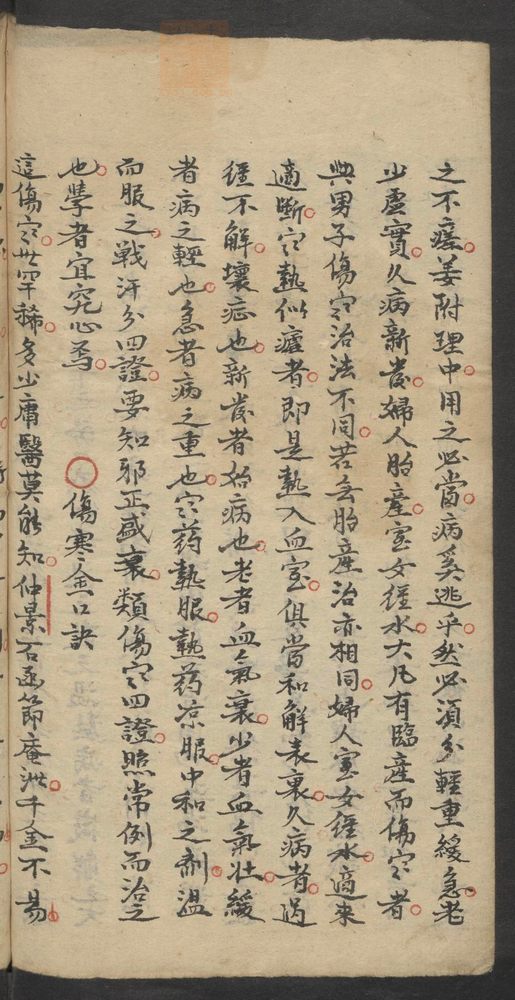 之不瘥。姜附理中。用之必當。病奚逃乎。然必須分輕重緩急。老
少虛實。久病新發。婦人胎產。室女經水。大凡有臨產而傷寒者。
與男子傷寒治法不同。若無胎產治亦相同。婦人室女經水。適來
適斷。寒熱似瘧者。即是熱入血室。俱當和解表裏。久病者。過
經不解。壞症也。新發者。始病也。老者血氣衰。少者血氣壯。緩
者病之輕也。急者病之重也。寒药熱服。熱药凉服。中和之劑。溫
而服之。戰汗分四證。要知邪正盛衰。類傷寒四證。照常例而治之
也。學者宜究心焉。 〇傷寒金口訣
這傷寒。世罕稀。多少庸醫莫能知。仲景石函節庵泄。千金不易